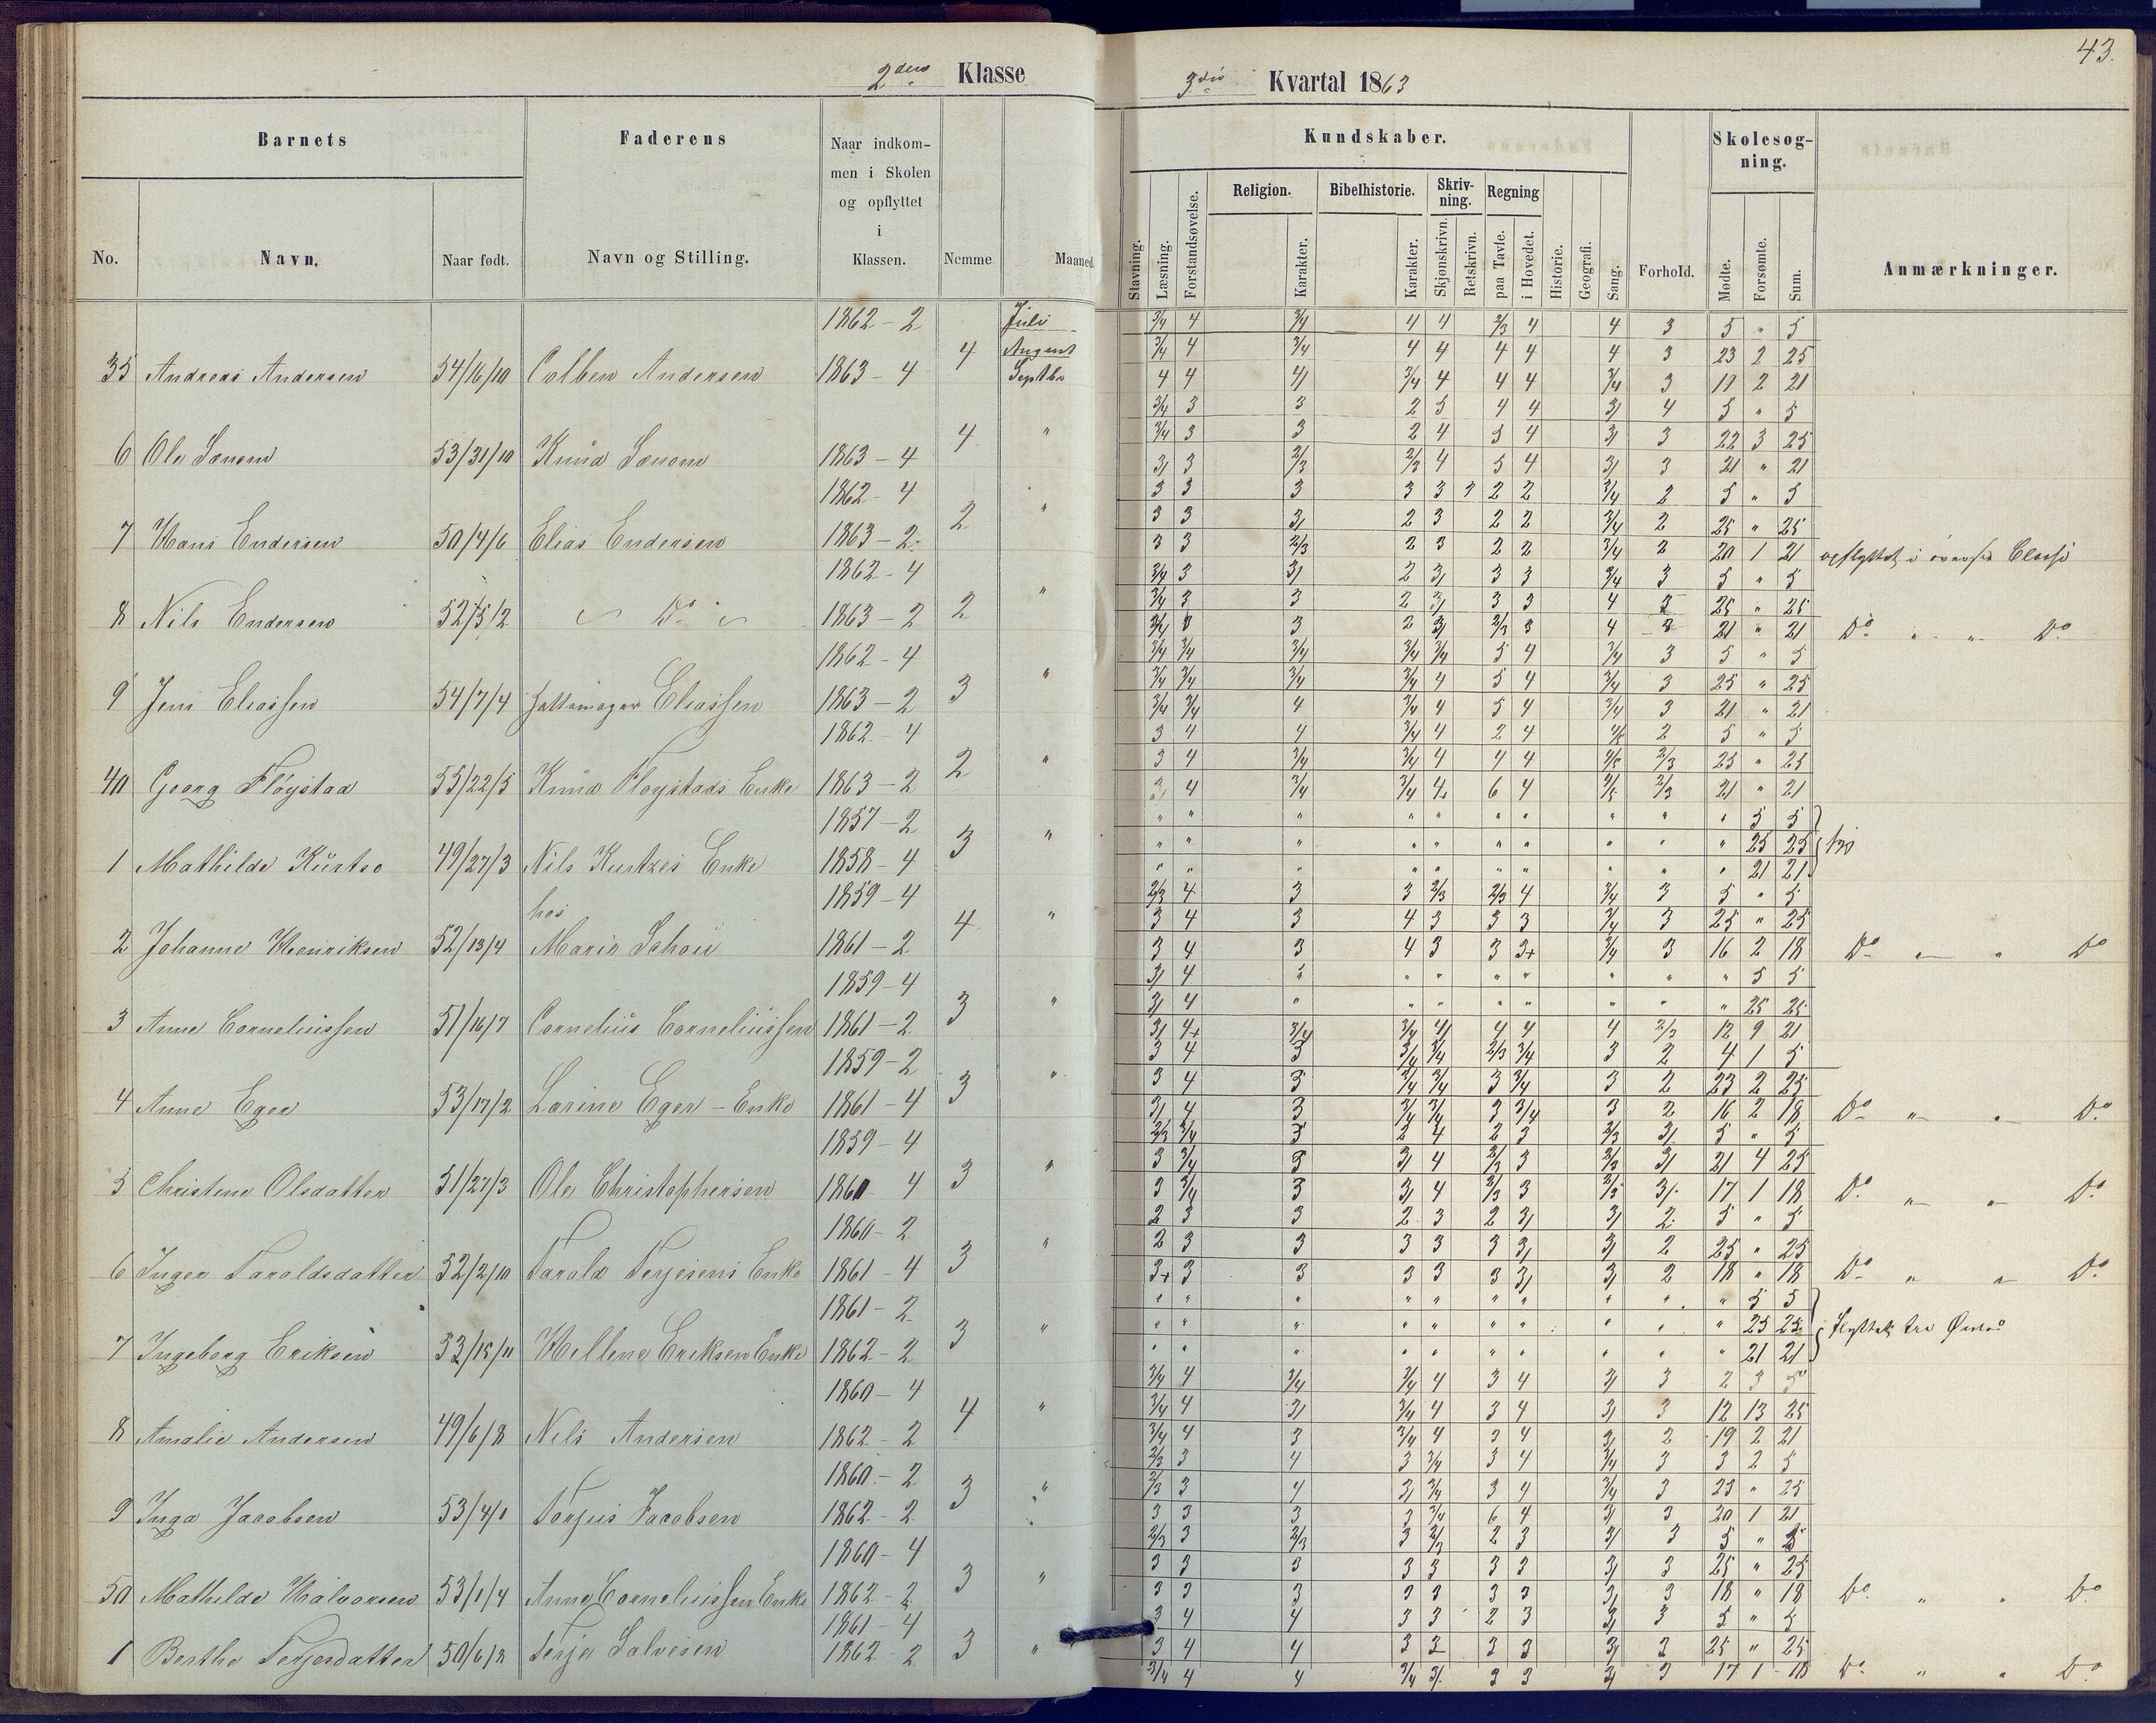 43.
2den Klasse
3die Kvartal 1863
Barnets
Faderens
Naar indkom-
men i Skolen
og opflyttet
i
Klassen.
Kundskaber.
Skolesøg-
ning.
Religion.
Bibelhistorie.
Skriv-
ning.
Regning
No.
Navn.
Naar født.
Navn og Stilling.
Nemme
Maaned.
Stavning.
Læsning.
Forstandsøvelse.
Karakter.
Karakter.
Skjønskrivn.
Retskrivn.
paa Tavle.
i Hovedet.
Historie.
Geografi.
Sang.
Forhold.
Mødte.
Forsømte.
Sum.
Anmærkninger.
1862 - 2 Juli 3/4 4 3/4 4 4 2/3 4 4 3 5 " 5
August 3/4 4 3/4 4 4 4 4 4 3 23 2 25
35 Andreas Andersen 54/16/10 Colben Andersen 1863 - 4 4 Septbr 4 4 4/ 3/4 4 4 4 3/4 3 19 2 21
3/4 3 3 2 5 4 4 3/ 4 5 " 5
3/4 3 3 2 4 5 4 3/ 3 22 3 25
6 Ole 53/31/10 Knud 1863 - 4 4 " 3/ 3 2/3 2/3 4 5 4 3/ 3 21 " 21
1862 - 4 3 3 3 3 3 2 2 3/4 2 5 " 5
3 3 3/ 2 3 2 2 3/4 2 25 " 25
7 Hans Endersen 50/4/6 Elias Endersen 1863 - 2 2 " 3 3 2/3 2 3 2 2 3/4 2 20 1 21 opflyttet i øverste Classe
1862 - 4 3/4 3 3/ 2 3/ 3 3 3/4 3 5 " 5
3/4 3 3 2 3/ 3 3 4 25 " 25
8 Nils Endersen 52/5/2 Do 1863 - 2 2 " 3 2 3/ 2/3 3 4 21 " 21 Do " " Do
1862 - 4 3/4 3/4 3/4 3/4 3/4 5 4 3/4 3 5 " 5
3/4 3/4 3/4 3/4 4 5 4 3/4 3 25 " 25
9 Jens Eliassen 54/7/4 Eliassen 1863 - 2 3 " 3/4 3/4 4 3/4 4 5 4 3/4 3 21 " 21
1862 - 4 3 4 4 3/4 4 2 4 4/5 2 5 " 5
3 4 3/4 3/4 4 4 4 4/5 2/3 25 " 25
40 Georg Fløystad 55/22/5 Knud Floystads Enke 1863 - 2 2 " 3/ 4 3/4 3/4 4 6 4 4/5 2/3 21 " 21
1857 - 2 " " " " " " " " " " 5 5
" " " " " " " " " " 25 25
1 Mathilde Kurtze 49/27/3 Nils Kurtzes Enke 1858 - 4 3 " " " " " " " " " " " 21 21
hos 1859 - 4 2/3 4 3 3 2/3 2/3 4 3/4 3 5 " 5
3 4 3 4 3 3 3 3/4 3 25 " 25
2 Johanne Henriksen 52/13/4 Marie Schou 1861 - 2 4 " 3 4 3 4 3 3 3+ 3/4 3 16 2 18 Do " " Do
1859 - 4 3/ 4 " " " " " " " " 5 5
3/ 4 " " " " " " " " 25 25
3 Anne Corneliussen 51/16/7 Cornelius Corneliussen 1861 - 2 3 " 3/ 4+ 3/4 3/4 4/ 4 4 4 2/3 12 9 21
1859 - 2 3 4 3 3/4 3/4 2/3 3/4 3 2 4 1 5
3 4 3 3/4 3/4 3 3/4 3 2 23 2 25
4 Anne Eger 53/17/2 Larine Eger - Enke 1861 - 4 3 " 3/ 4 3 3/4 3/4 3 3/4 3 2 16 2 18 Do " " Do
1859 - 4 2/3 3/4 3 2 4 2 3 2/3 3/ 5 " 5
3 3/4 3 3/ 4 2/3 3 2/3 3/ 21 4 25
5 Christene Olsdatter 51/27/3 Ole Christophersen 1860 4 3 " 3 3/4 3 3/ 4 2/3 3 2/3 3/. 17 1 18 Do " " Do
1860 - 2 2 3 3 2 3 2 3/ 3/ 2 5 " 5
2 3 3 3 3 3 3/ 3/ 2 25 " 25
6 Inger Taroldsdatter 52/2/10 Tarald Terjesens Enke 1861 - 4 3 " 3+ 3 3 3 3 3 3/ 3/ 2 18 " 18 Do " " Do
1861 - 2 " " " " " " " " " " 5 5
" " " " " " " " " " 25 25 flyttet
7 Ingeborg Eriksen 53/15/11 Hellene Eriksen Enke 1862 - 2 3 " " " " " " " " " " " 21 21
1860 - 4 3/4 4 3/4 3/4 4 3 4 3/ 3 2 3 5
3/4 4 3/ 3/4 4 3 4 3/ 3 12 13 25
8 Amalie Andersen 49/6/8 Nils Andersen 1862 - 2 4 " 3/4 4 3 3/4 4 3 4 3/ 2 19 2 21
1860 - 2 2/3 3 4 3 3/4 3 4 3/4 3 3 2 5
2/3 3 4 3/ 3/4 3 4 3/4 3 25 " 25
9 Inga Jacobsen 53/4/1 Torjus Jacobsen 1862 - 2 3 " 3 3 3 3 3/4 6 4 3/ 3 20 1 21
1860 - 4 2/3 3 2/3 3 2/3 2 3 3/ 3 5 " 5
3 3 3 3 3 3 3 3/ 3 25 " 25
50 Mathilde Halvorsen 53/1/4 Anne Corneliussen Enke 1862 - 2 3 " 3 3 3 3 3 3 3 3/ 3 18 " 18 Do " " Do
1861 - 4 3 4 4 3 3 2 3 3/ 3 5 " 5
3 4 4 3 3 3 3 3/ 3 25 " 25
1 Berthe Terjesdatter 50/6/8 Terje Salvesen 1862 2 3 " 3/4 4 4 3/4 3/. 3 3 3/ 3 17 1 18 Do " " Do